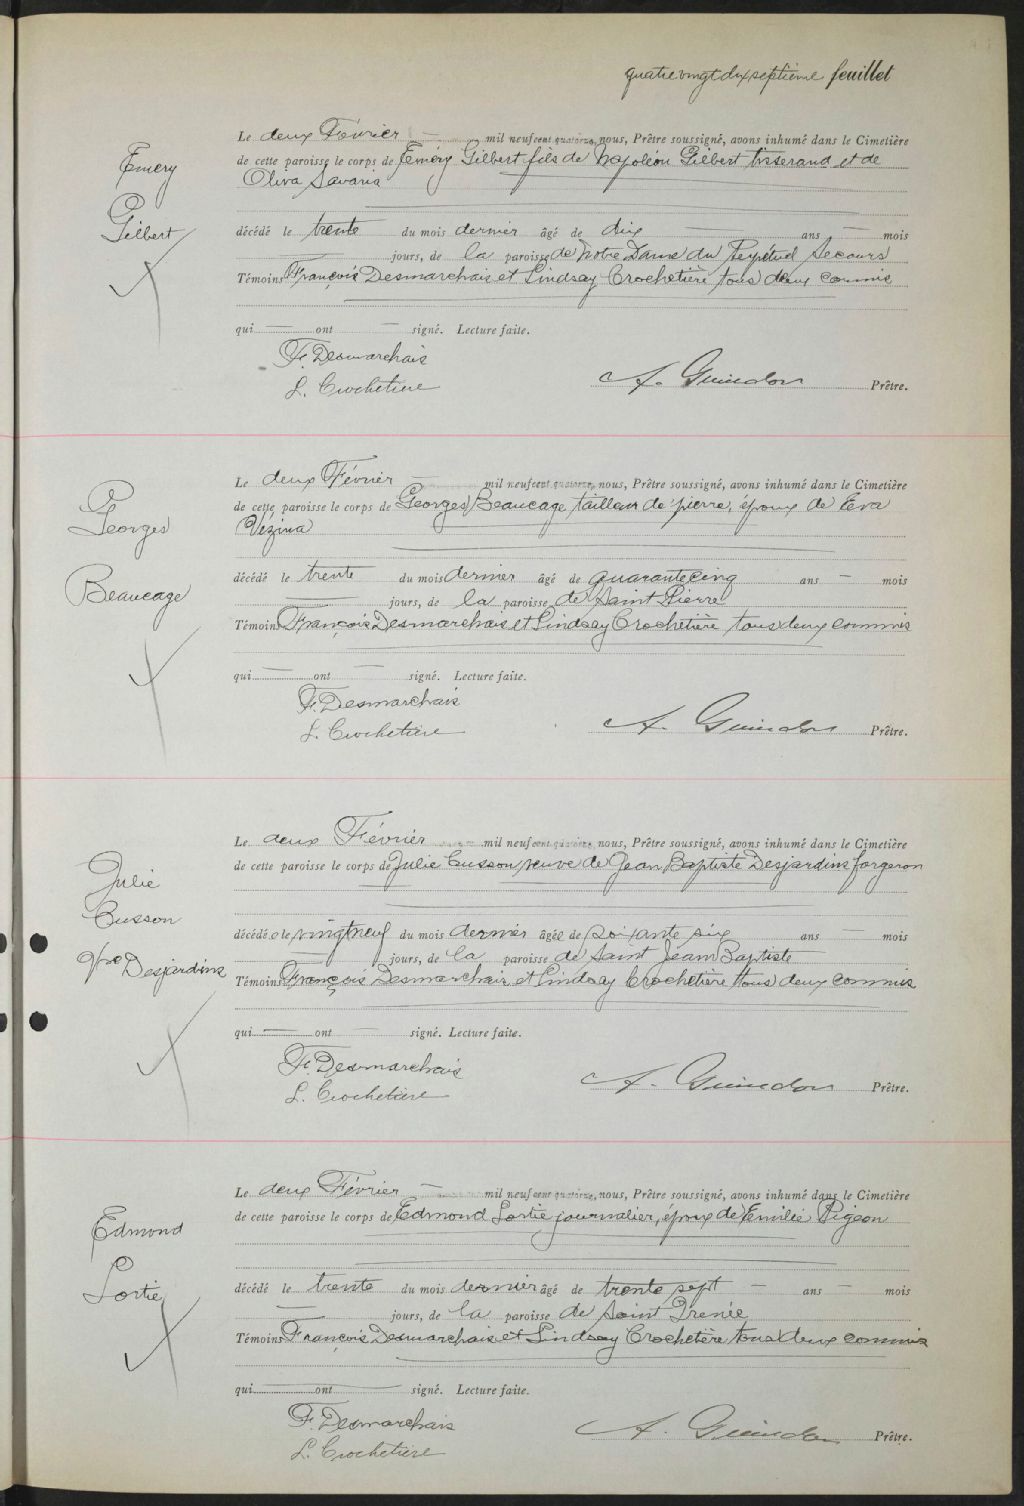 quatre vingt dix septième feuillet
Emery
Gilbert
Le deux Février — mil neuf cent quatorze, nous, Prêtre soussigné, avons inhumé dans le Cimetière
de cette paroisse le corps de Emery Gilbert fils de Napoléon Gilbert tisserand et de
Oliva Savaria
décédé le trente du mois dernier âgé de dix — ans — mois
— jours, de la paroisse de Notre Dame du Perpétuel Secours
Témoins François Desmarchais et Lindsay Crochetière tous deux commis
qui — ont — signé. Lecture faite.
F. Desmarchais
L. Crochetière
A. Guindon Prêtre.
Georges
Beaucage
Le deux Février — mil neuf cent quatorze, nous, Prêtre soussigné, avons inhumé dans le Cimetière
de cette paroisse le corps de Georges Beaucage tailleur de pierre, époux de Eva
Vézina
décédé le trente du mois dernier âgé de quarante cinq ans — mois
— jours, de la paroisse de Saint Pierre
Témoins François Desmarchais et Lindsay Crochetière tous deux commis
qui — ont — signé. Lecture faite.
F. Desmarchais
L. Crochetière
A. Guindon Prêtre.
Julie
Cusson
Vve Desjardins
Le deux Février mil neuf cent quatorze, nous, Prêtre soussigné, avons inhumé dans le Cimetière
de cette paroisse le corps de Julie Cusson veuve de Jean Baptiste Desjardins forgeron
décédée le vingt neuf du mois dernier âgée de soixante six ans — mois
— jours, de la paroisse de Saint Jean Baptiste
Témoins François Desmarchais et Lindsay Crochetière tous deux commis
qui — ont — signé. Lecture faite.
F. Desmarchais
L. Crochetière
A. Guindon Prêtre.
Edmond
Lortie
Le deux Février — mil neuf cent quatorze, nous, Prêtre soussigné, avons inhumé dans le Cimetière
de cette paroisse le corps de Edmond Lortie journalier, époux de Emilie Pigeon
décédé le trente du mois dernier âgé de trente sept — ans — mois
— jours, de la paroisse de Saint Irenée
Témoins François Desmarchais et Lindsay Crochetière tous deux commis
qui — ont — signé. Lecture faite.
F. Desmarchais
L. Crochetière
A. Guindon Prêtre.